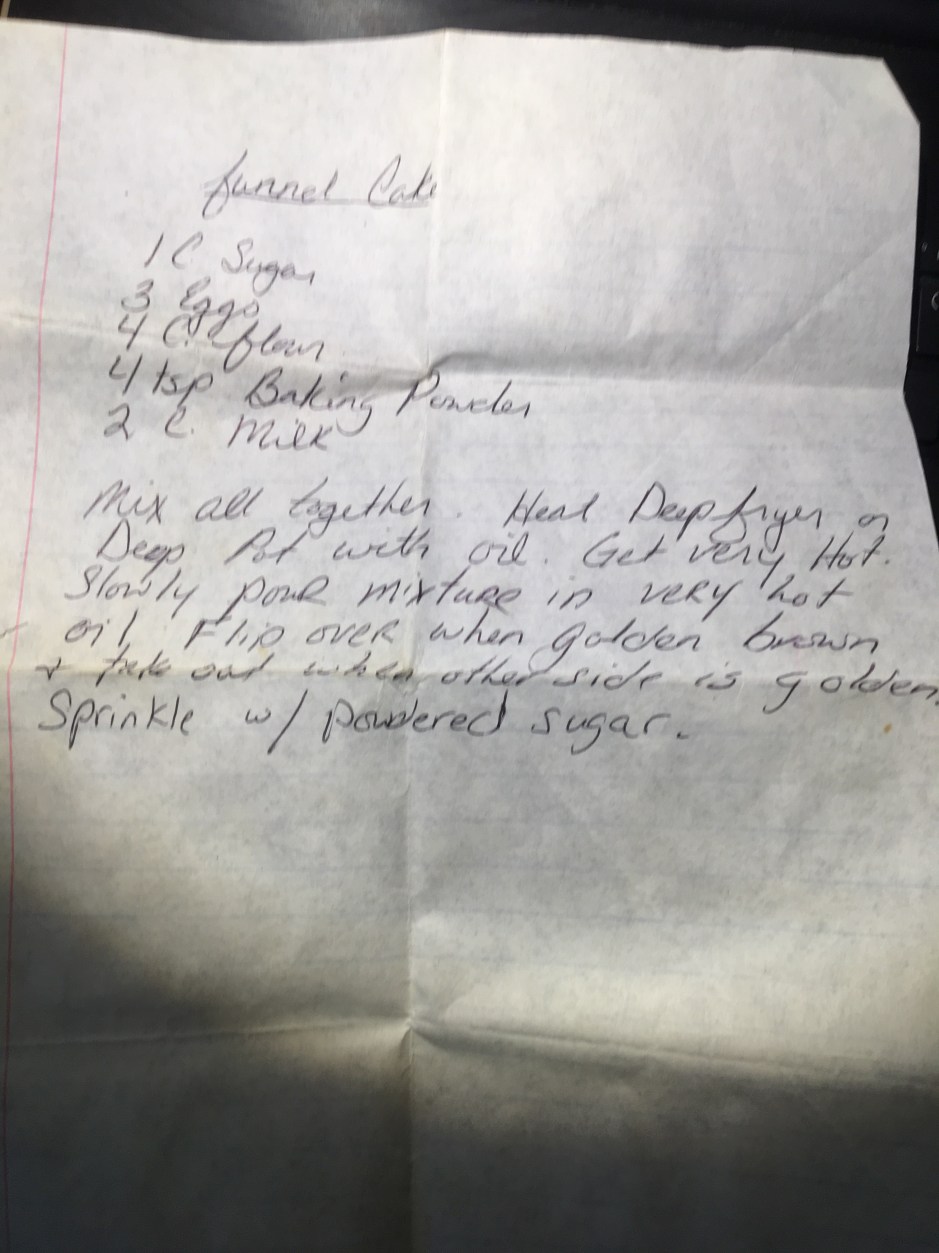 funnel Cake
1 C Sugar
3 Eggs
4 C. flour
4 tsp Baking Powder
2 C. Milk
Mix all together. Heat Deepfryer or
Deep Pot with oil. Get very Hot.
Slowly pour mixture in very hot
oil. Flip over when golden brown
+ take out when other side is golden.
Sprinkle w/ powdered sugar.